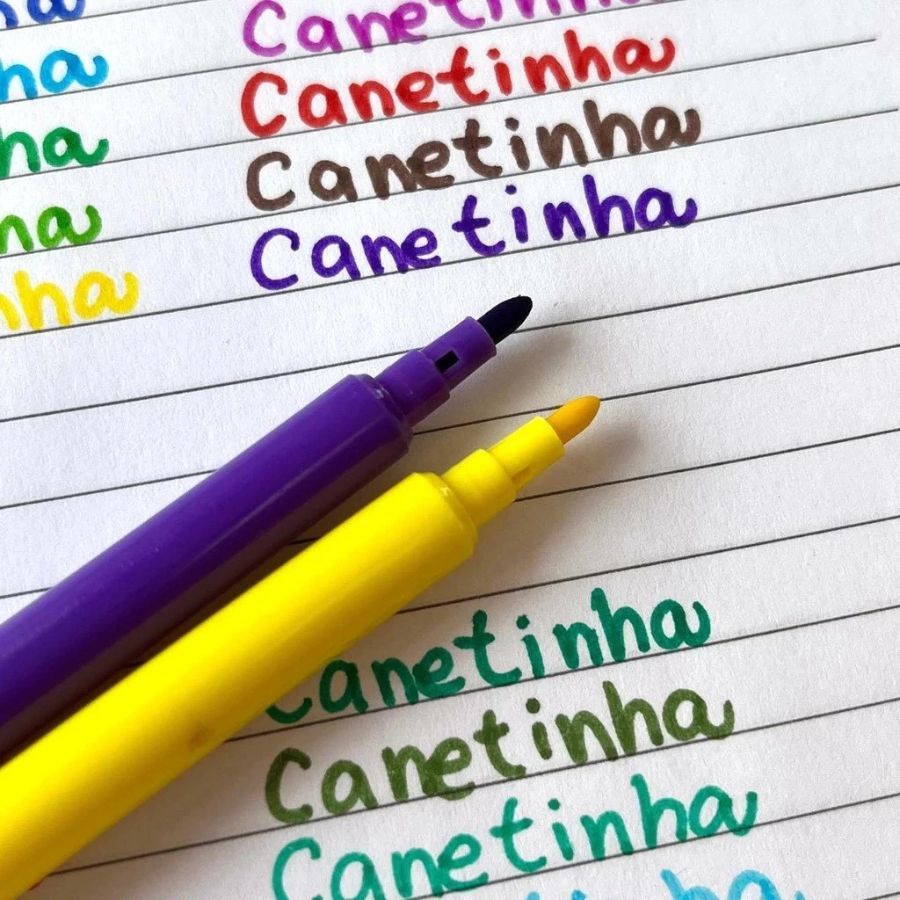 Canetinha
Canetinha
Canetinha
Canetinha
Canetinha
Canetinha
Canetinha